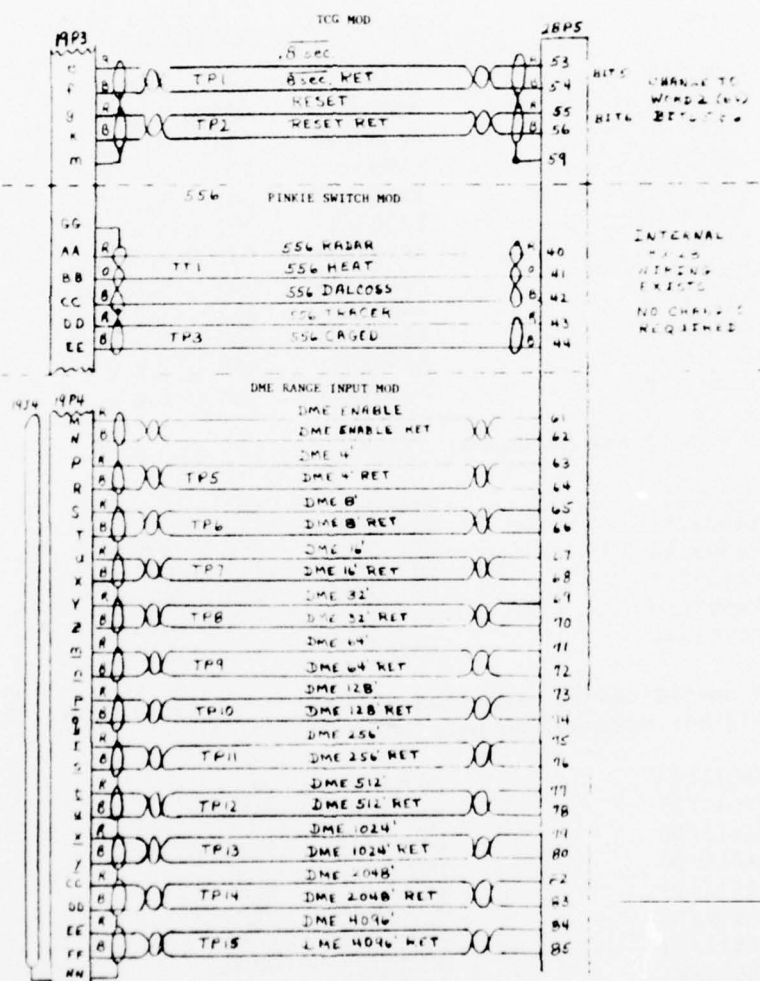 TCG MOD
19P3 28P5
.8 sec
e R R 53
TP1 .8 sec. RET BIT 5 CHANGE TO
f B B 54
RESET WORD 2
g R R 55
TP2 RESET RET BIT 6
k B B 56
m 59
556 PINKIE SWITCH MOD
GG
INTERNAL
AA R 556 RADAR R 40
BB O TT1 556 HEAT O 41 WIRING
CC B 556 DALCOSS B 42 EXISTS
DD R 556 TRACER R 43 NO CHANGE
EE B TP3 556 CAGED B 44 REQUIRED
DME RANGE INPUT MOD
19J4 19P4
M R DME ENABLE 61
N B DME ENABLE RET 62
P R DME 4' 63
R B TP5 DME 4' RET 64
S R DME 8' 65
T B TP6 DME 8' RET 66
U R DME 16' 67
X B TP7 DME 16' RET 68
Y R DME 32' 69
Z B TP8 DME 32' RET 70
m R DME 64' 71
n B TP9 DME 64' RET 72
p R DME 128' 73
q B TP10 DME 128' RET 74
r R DME 256' 75
s B TP11 DME 256' RET 76
t R DME 512' 77
u B TP12 DME 512' RET 78
x R DME 1024' 79
y B TP13 DME 1024' RET 80
CC R DME 2048' 82
DD B TP14 DME 2048' RET 83
EE R DME 4096' 84
FF B TP15 DME 4096' RET 85
NN